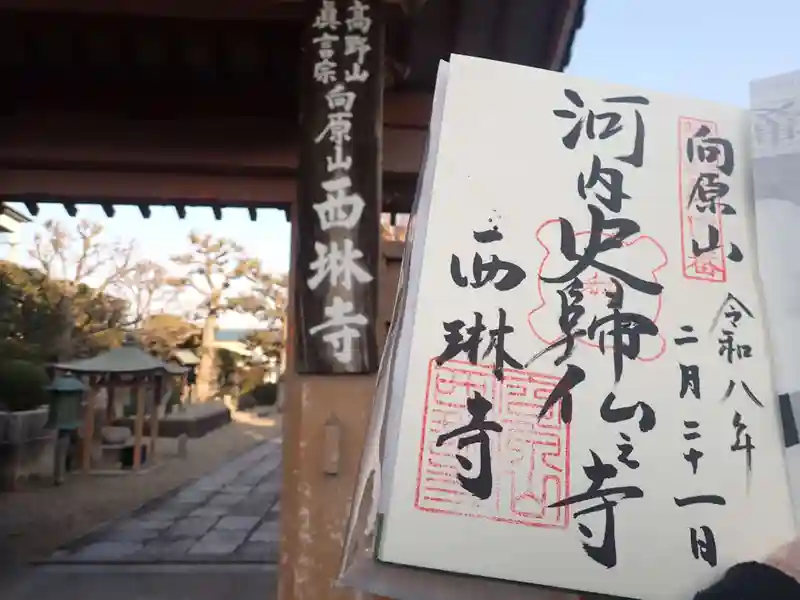 高野山
眞言宗
向原山
西琳寺
向原山
令和八年
二月二十一日
河内史歸仏之寺
西琳寺